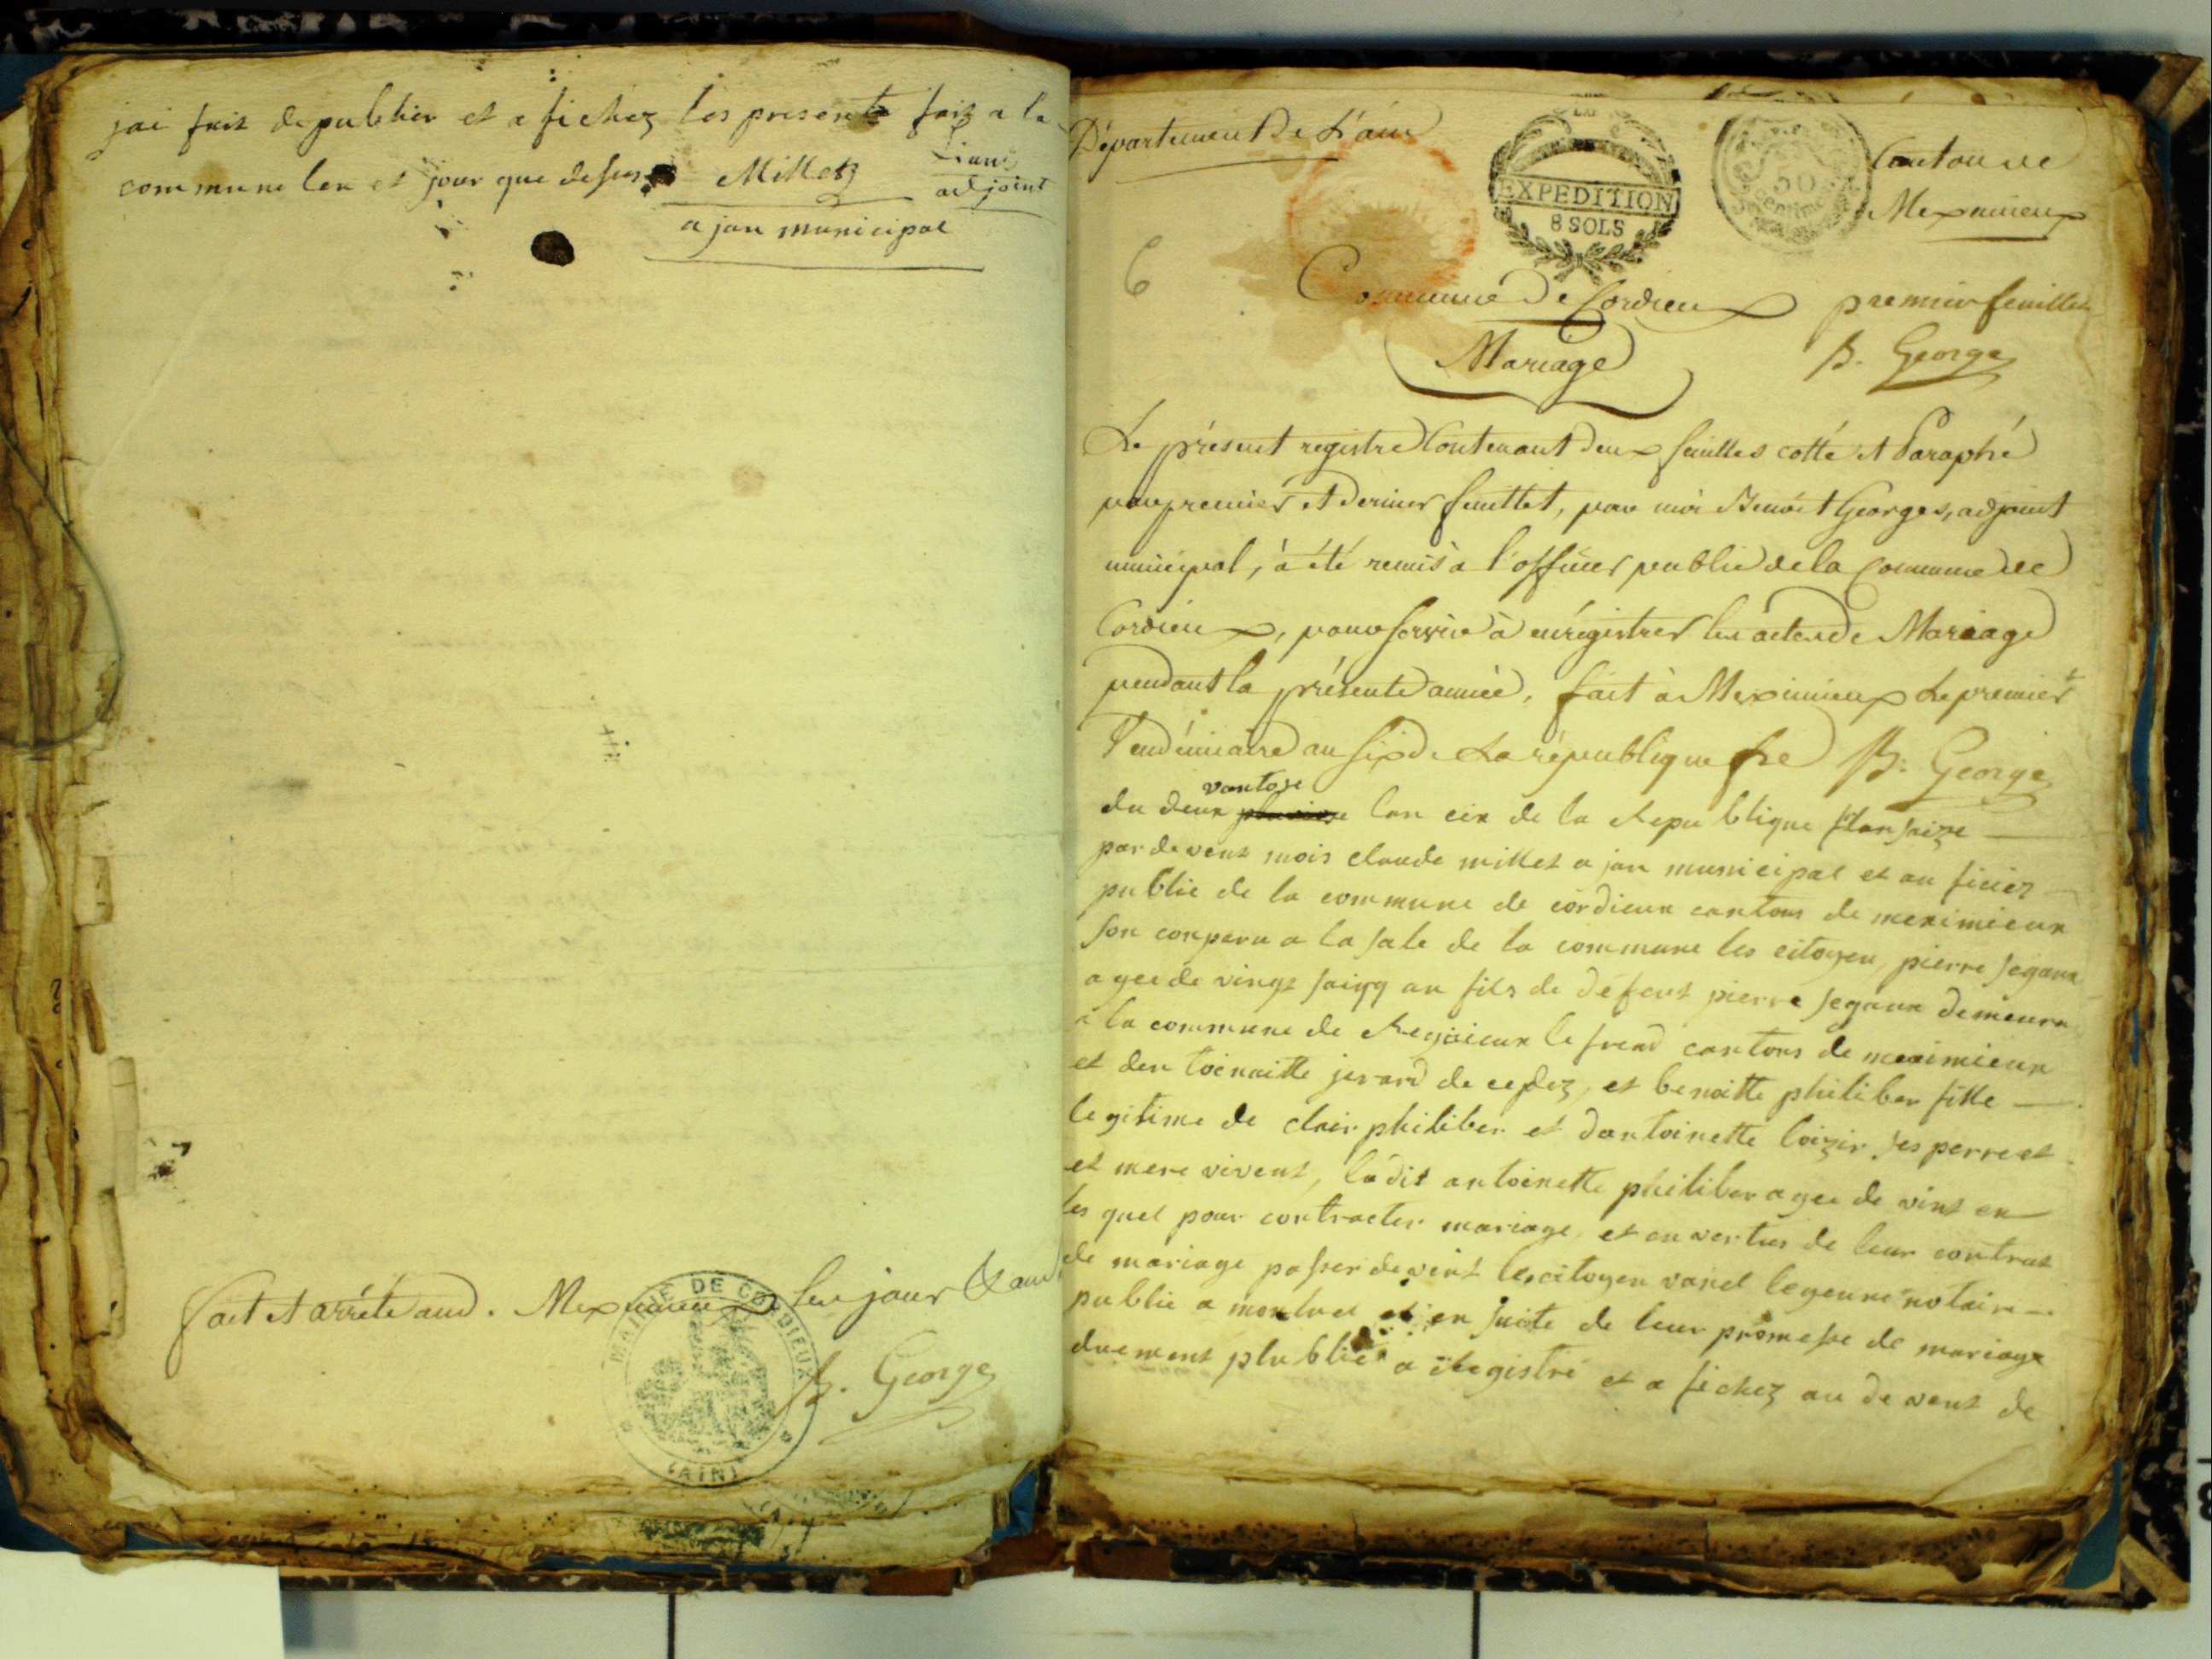 jai fait de publier et a fichez les presente fait a la
commune lan et jour que desus Millet
adjoint
a jan municipal
fait et arrêté aud. Meximieux les jour & an
B. George
MAIRIE DE CORDIEUX
(AIN)
Département De L'ain
EXPEDITION
8 SOLS
50
Centimes
Canton de
Meximieux
6
Commune De Cordieux premier feuillet
Mariage
B. George
Le présent registre Contenant deux feuilles cotté et Paraphé
par premier et dernier feuillet, par moi Benoît Georges, adjoint
municipal, à été remis à l'officier public de la Commune de
Cordieux, pour servir à enrégistrer les actes de Mariage
pendant la présente année, fait à Meximieux Le premier
Vendémiaire an six de La république fre B. George
vantose
du deux pluviose lan cix de la Republique fransaize
par devent mois claude millet a jan municipal et au ficiez
public de la commune de cordieux cantons de meximieux
son conparu a la sale de la commune les citoyen pierre segaux
agee de vingt sainq an fils de défent pierre segaux demeura
a la commune de Rejoieux le freud cantons de meximieux
et den toinaitte jerard de cedez, et benaitte philiber fille
legitime de clair philiber et dantoinette loizir ses perre et
et mere vivent, ladit antoinette philiber agee de vint en
les quel pour contracter mariage, et en vertus de leur contrat
de mariage passer devent le citoyen vanel le jeune notaire
public a montuel et en suite de leur promesse de mariage
duement plublié a Registré et a fichez au devent de